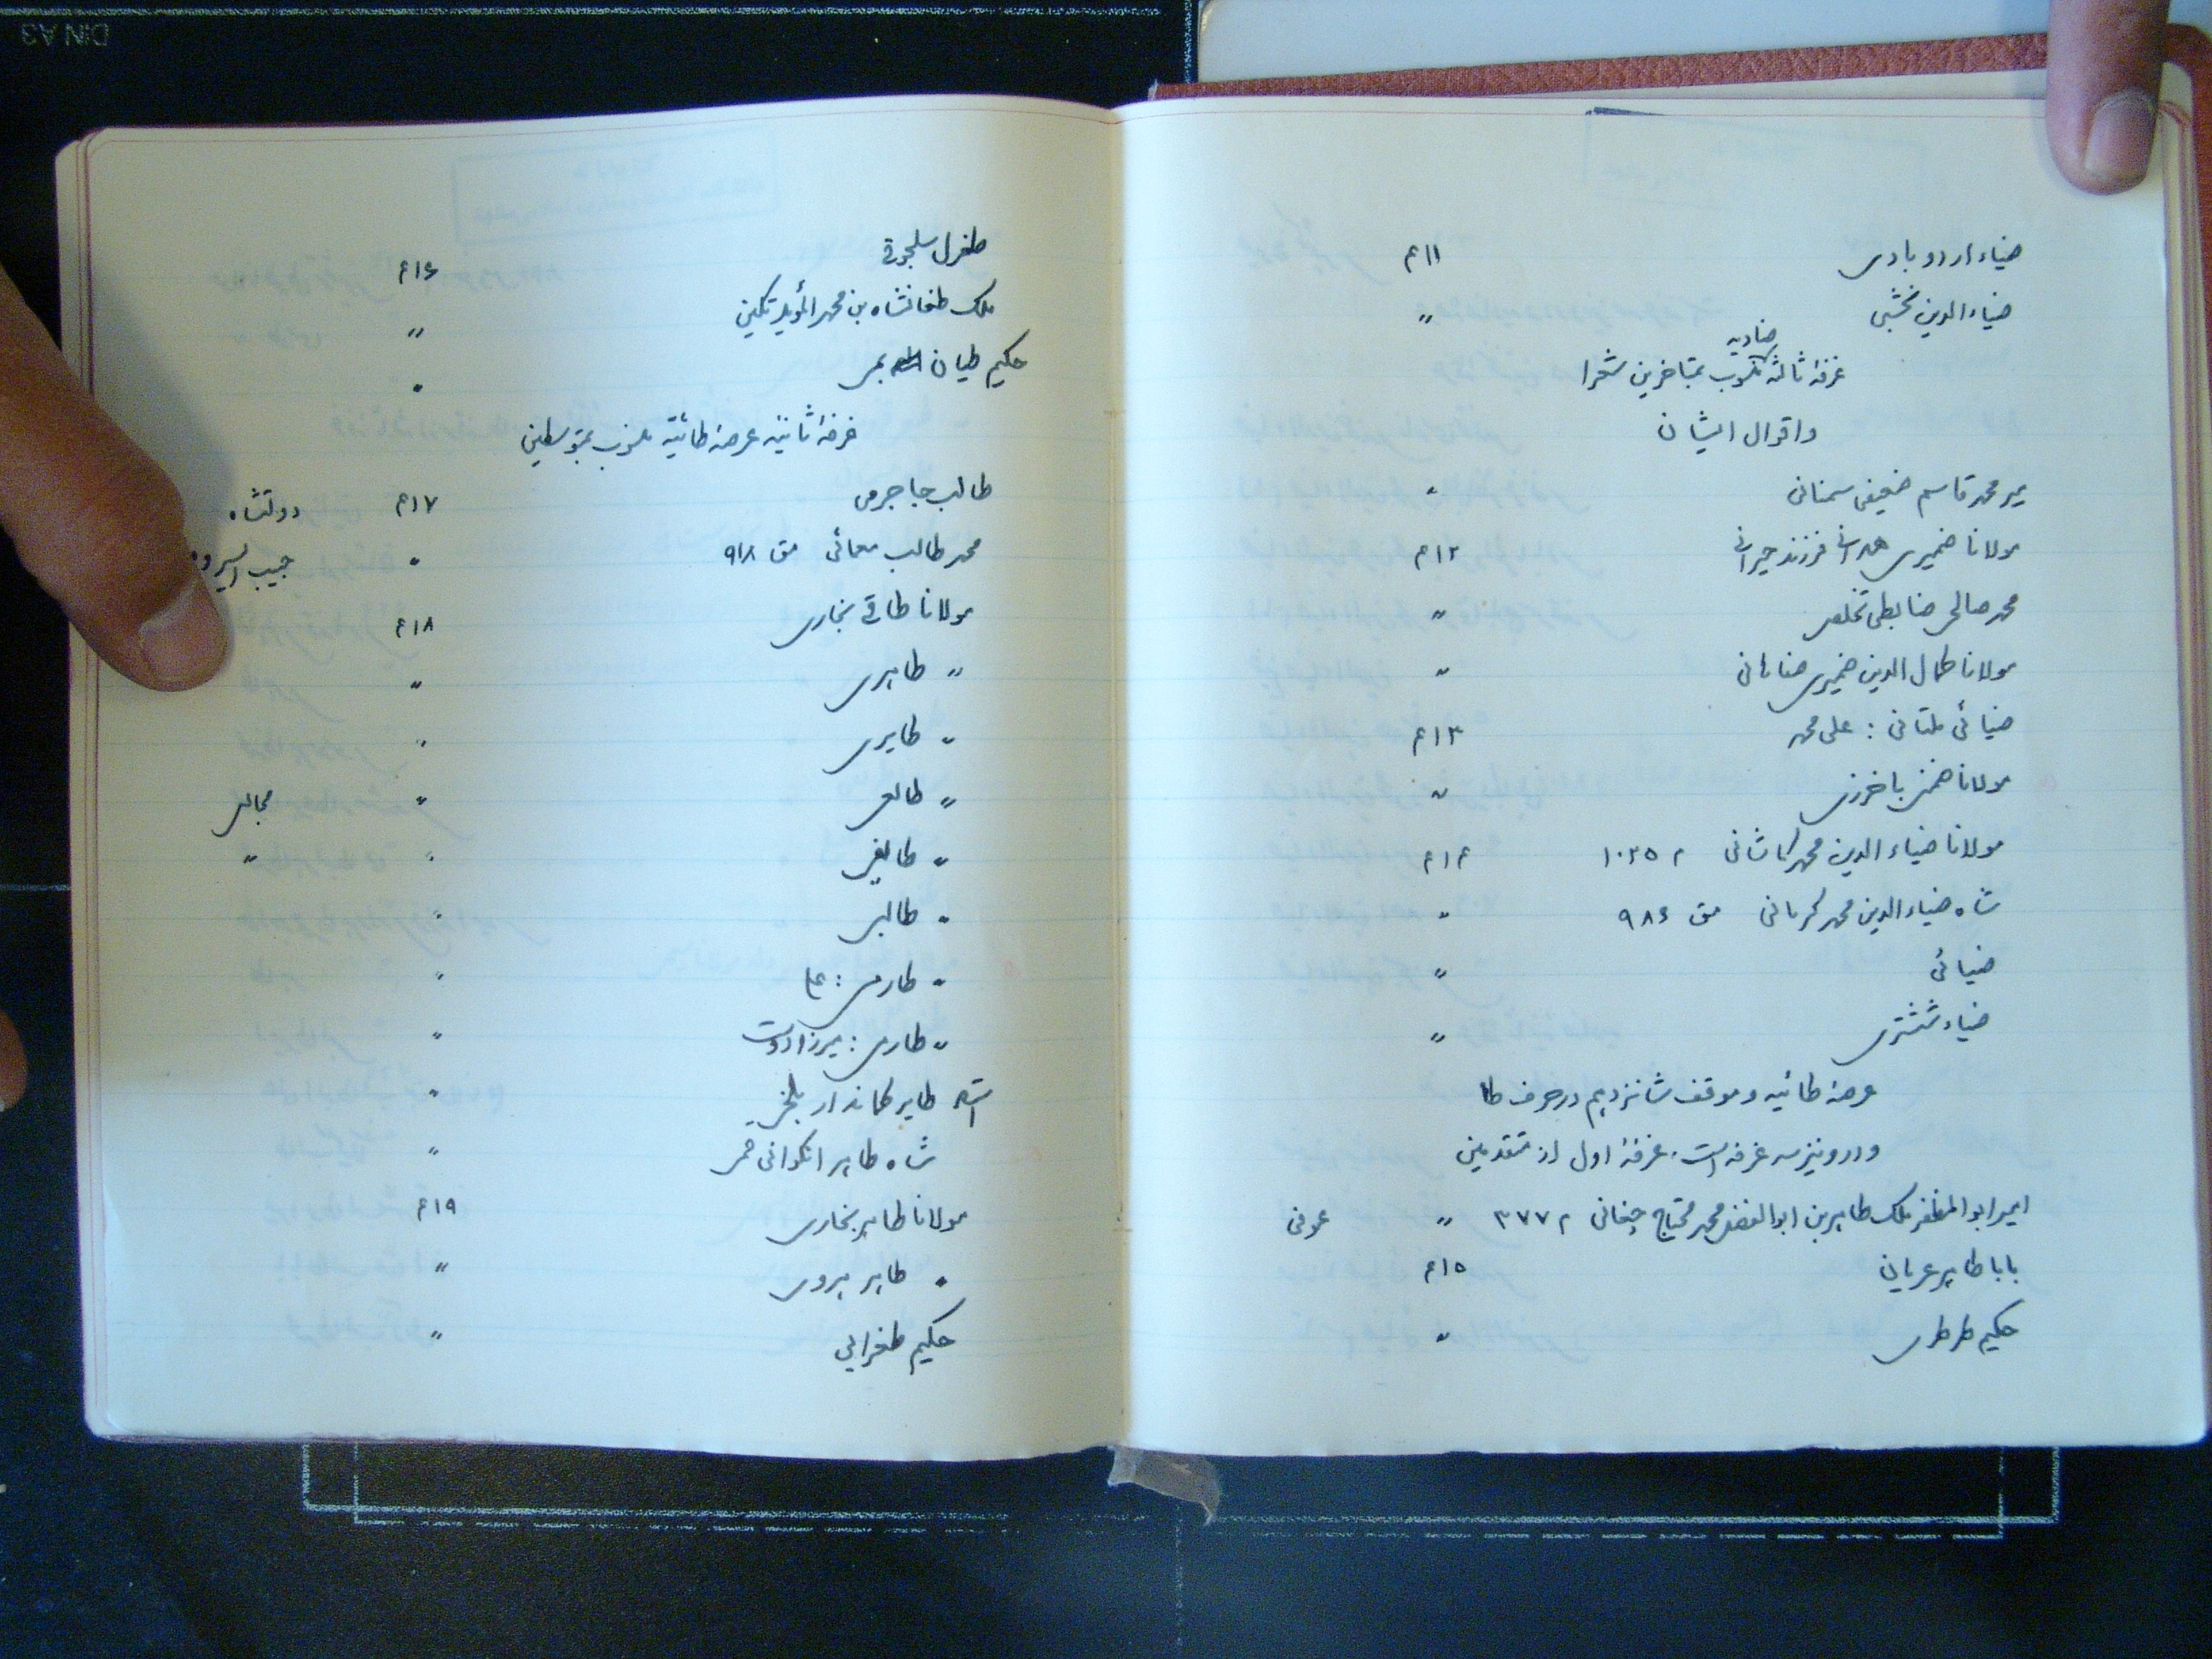 DIN A3
ضیاء اردوبادی ۴۱۱
ضیاء الدین نخشبی "
ضادیه
غرفهٔ ثالثه مکتوب بمتاخرین شعرا
واقوال ایشان
میر محمد قاسم ضعیفی سمنانی "
مولانا ضمیری همدانی فرزند حیرانی ۴۱۲
محمد صالح ضابطی تخلص "
مولانا کمال الدین ضمیری صفاهانی "
ضیائی ملتانی : علی محمد ۴۱۳
مولانا باخرزی "
مولانا ضیاء الدین محمد کاشانی م ۱۰۲۵ ۴۱۴
شاه ضیاء الدین محمد کرمانی مق ۹۸۶ "
ضیائی "
ضیاء ششتری "
عرصهٔ طائیه و موقف شانزدهم در حرف طا
و در و نیز سه غرفه است. غرفهٔ اول از متقدمین
امیر ابو المظفر ملک طاهر بن ابو الفضل محمد محتاج چغانی م ۳۷۷ " عوفی
بابا طاهر عریان ۴۱۵
حکیم طرطری "
طغرل سلجوقی ۴۱۶
ملک طغانشاه بن محمد المؤید تکین "
حکیم طیان بمی "
غرفهٔ ثانیه عرصهٔ طائیه مکتوب بمتوسطین
طالب جاجرمی ۴۱۷ دولتشاه
محمد طالب معمائی مق ۹۱۸ " حبیب السیر
مولانا طاقی بخاری ۴۱۸
" طاهری "
" طایری "
" طالعی " مجالس
" طایفی " "
" طالبی "
" طارمی : علی "
" طارمی : میرزا دوست "
استاد طاهر کماندار بلخی "
شاه طاهر انکوانی قمی "
مولانا طاهر بخاری ۴۱۹
" طاهر هروی "
حکیم طغرایی "